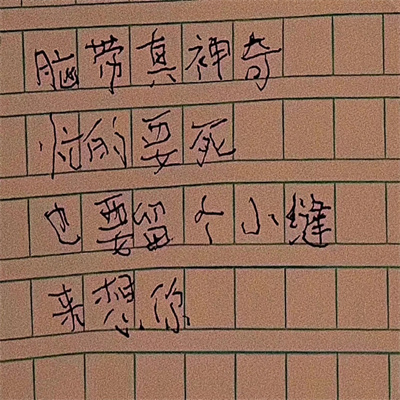 脑带真神奇
忙的要死
也要留个小缝
来想你